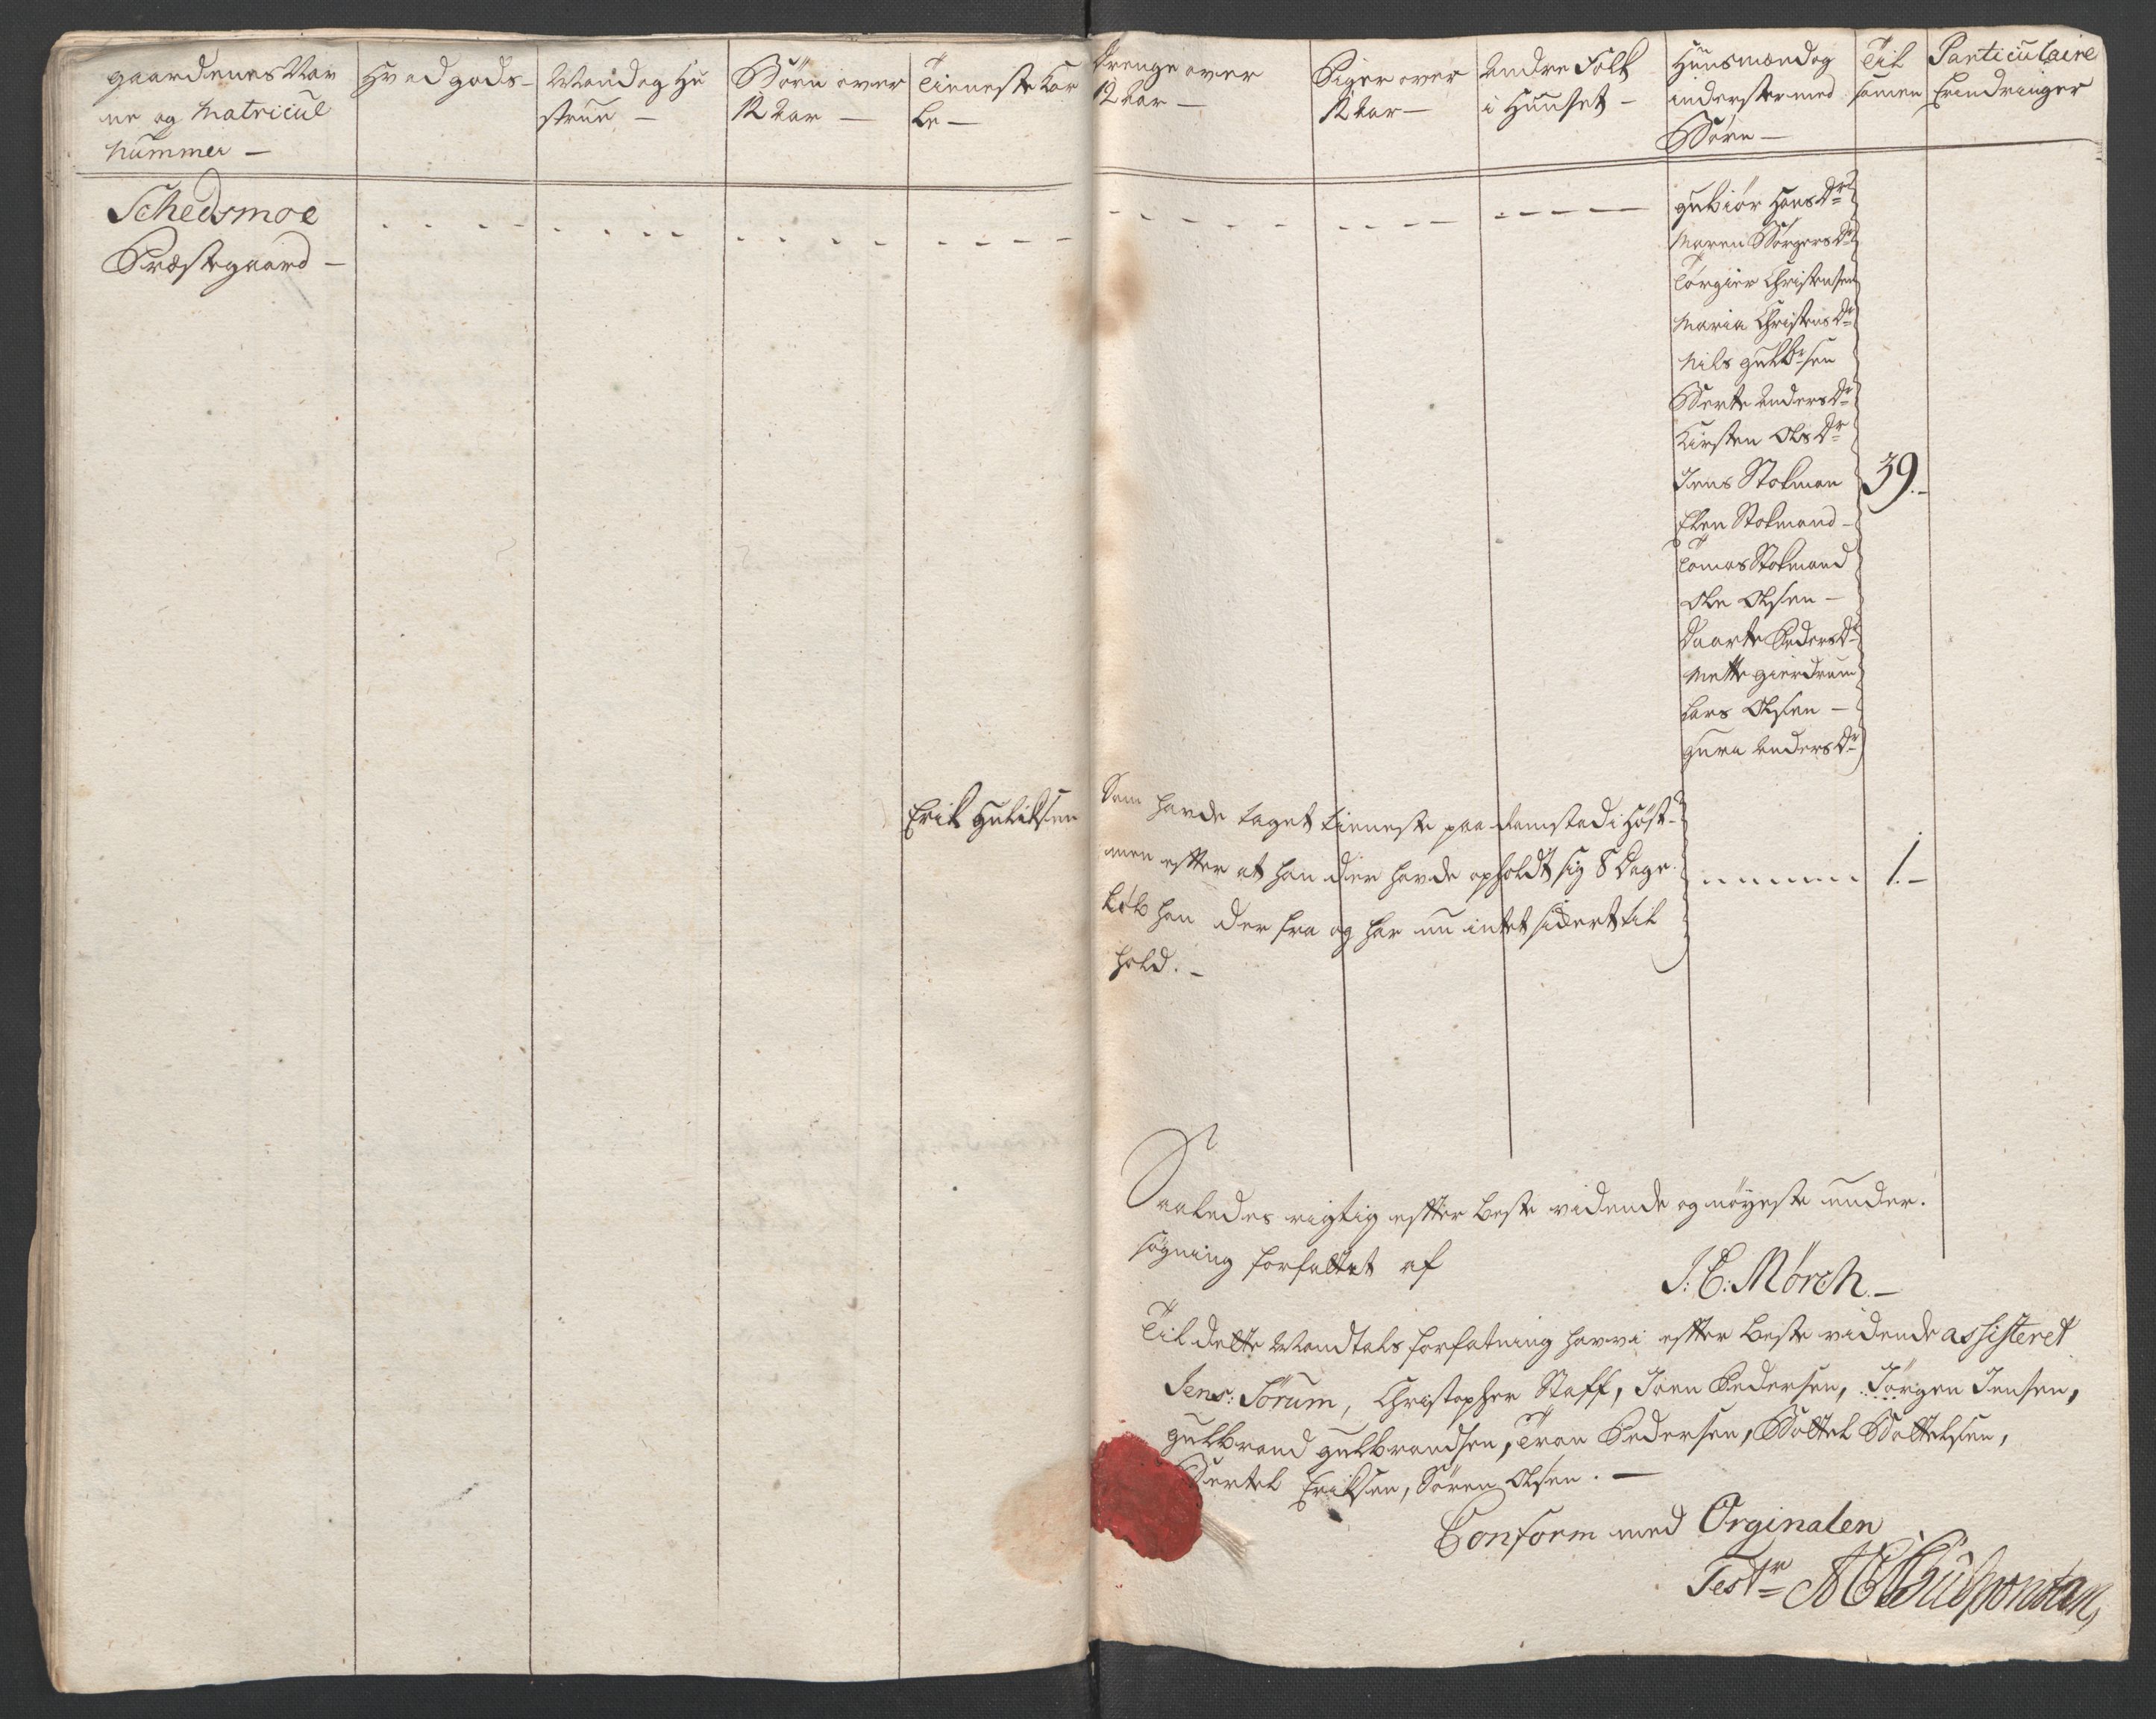 gaardenes Nav
ne og Matricul
Nummer —
Hvad gods —
Mand og Hu
strue —
Börn over
12 Aar —
Tieneste Kar
le —
Drenge over
12 Aar —
Piger over
12 Aar —
Andre Folk
i Huuset —
Huusmænd og
inderster med
Börn —
Til
samen
Particulaire
Erindringer
Schedsmoe
Præstegaard —
Gubiör Hans Dr
Maren Börgers Dr
Törgier Christensen
Maria Christens Dr
Nils Gulbrsen
Berte Anders Dr
Kirsten Ols Dr
Jens Stokman
39.-
Elen Stokmand —
Tomas Stokmand
Ole Olsen —
Daarte Peders Dr
Mette Gierdrum
Lars Olsen —
Guru Anders Dr
Erik Guliksen
Som havde taget tieneste paa Ramstad i Höst
men effter at han der havde opholdt sig 8 Dage
1.-
Löb han der fra og har nu intet sidert til
hold. —
Saaledes rigtig effter beste vidende og nöyeste under-
sögning forfattet af
J: C: Mörch. —
Til dette Mandtals forfatning har vi effter beste vidende assisteret
Jens: Sörum, Christopher Staff, Joen Pedersen, Jörgen Jensen,
Gulbrand Gulbrandsen, Tron Pedersen, Bottel Bottelsen,
Bertel Eriksen, Sören Olsen. —
Conform med Orginalen
Testr